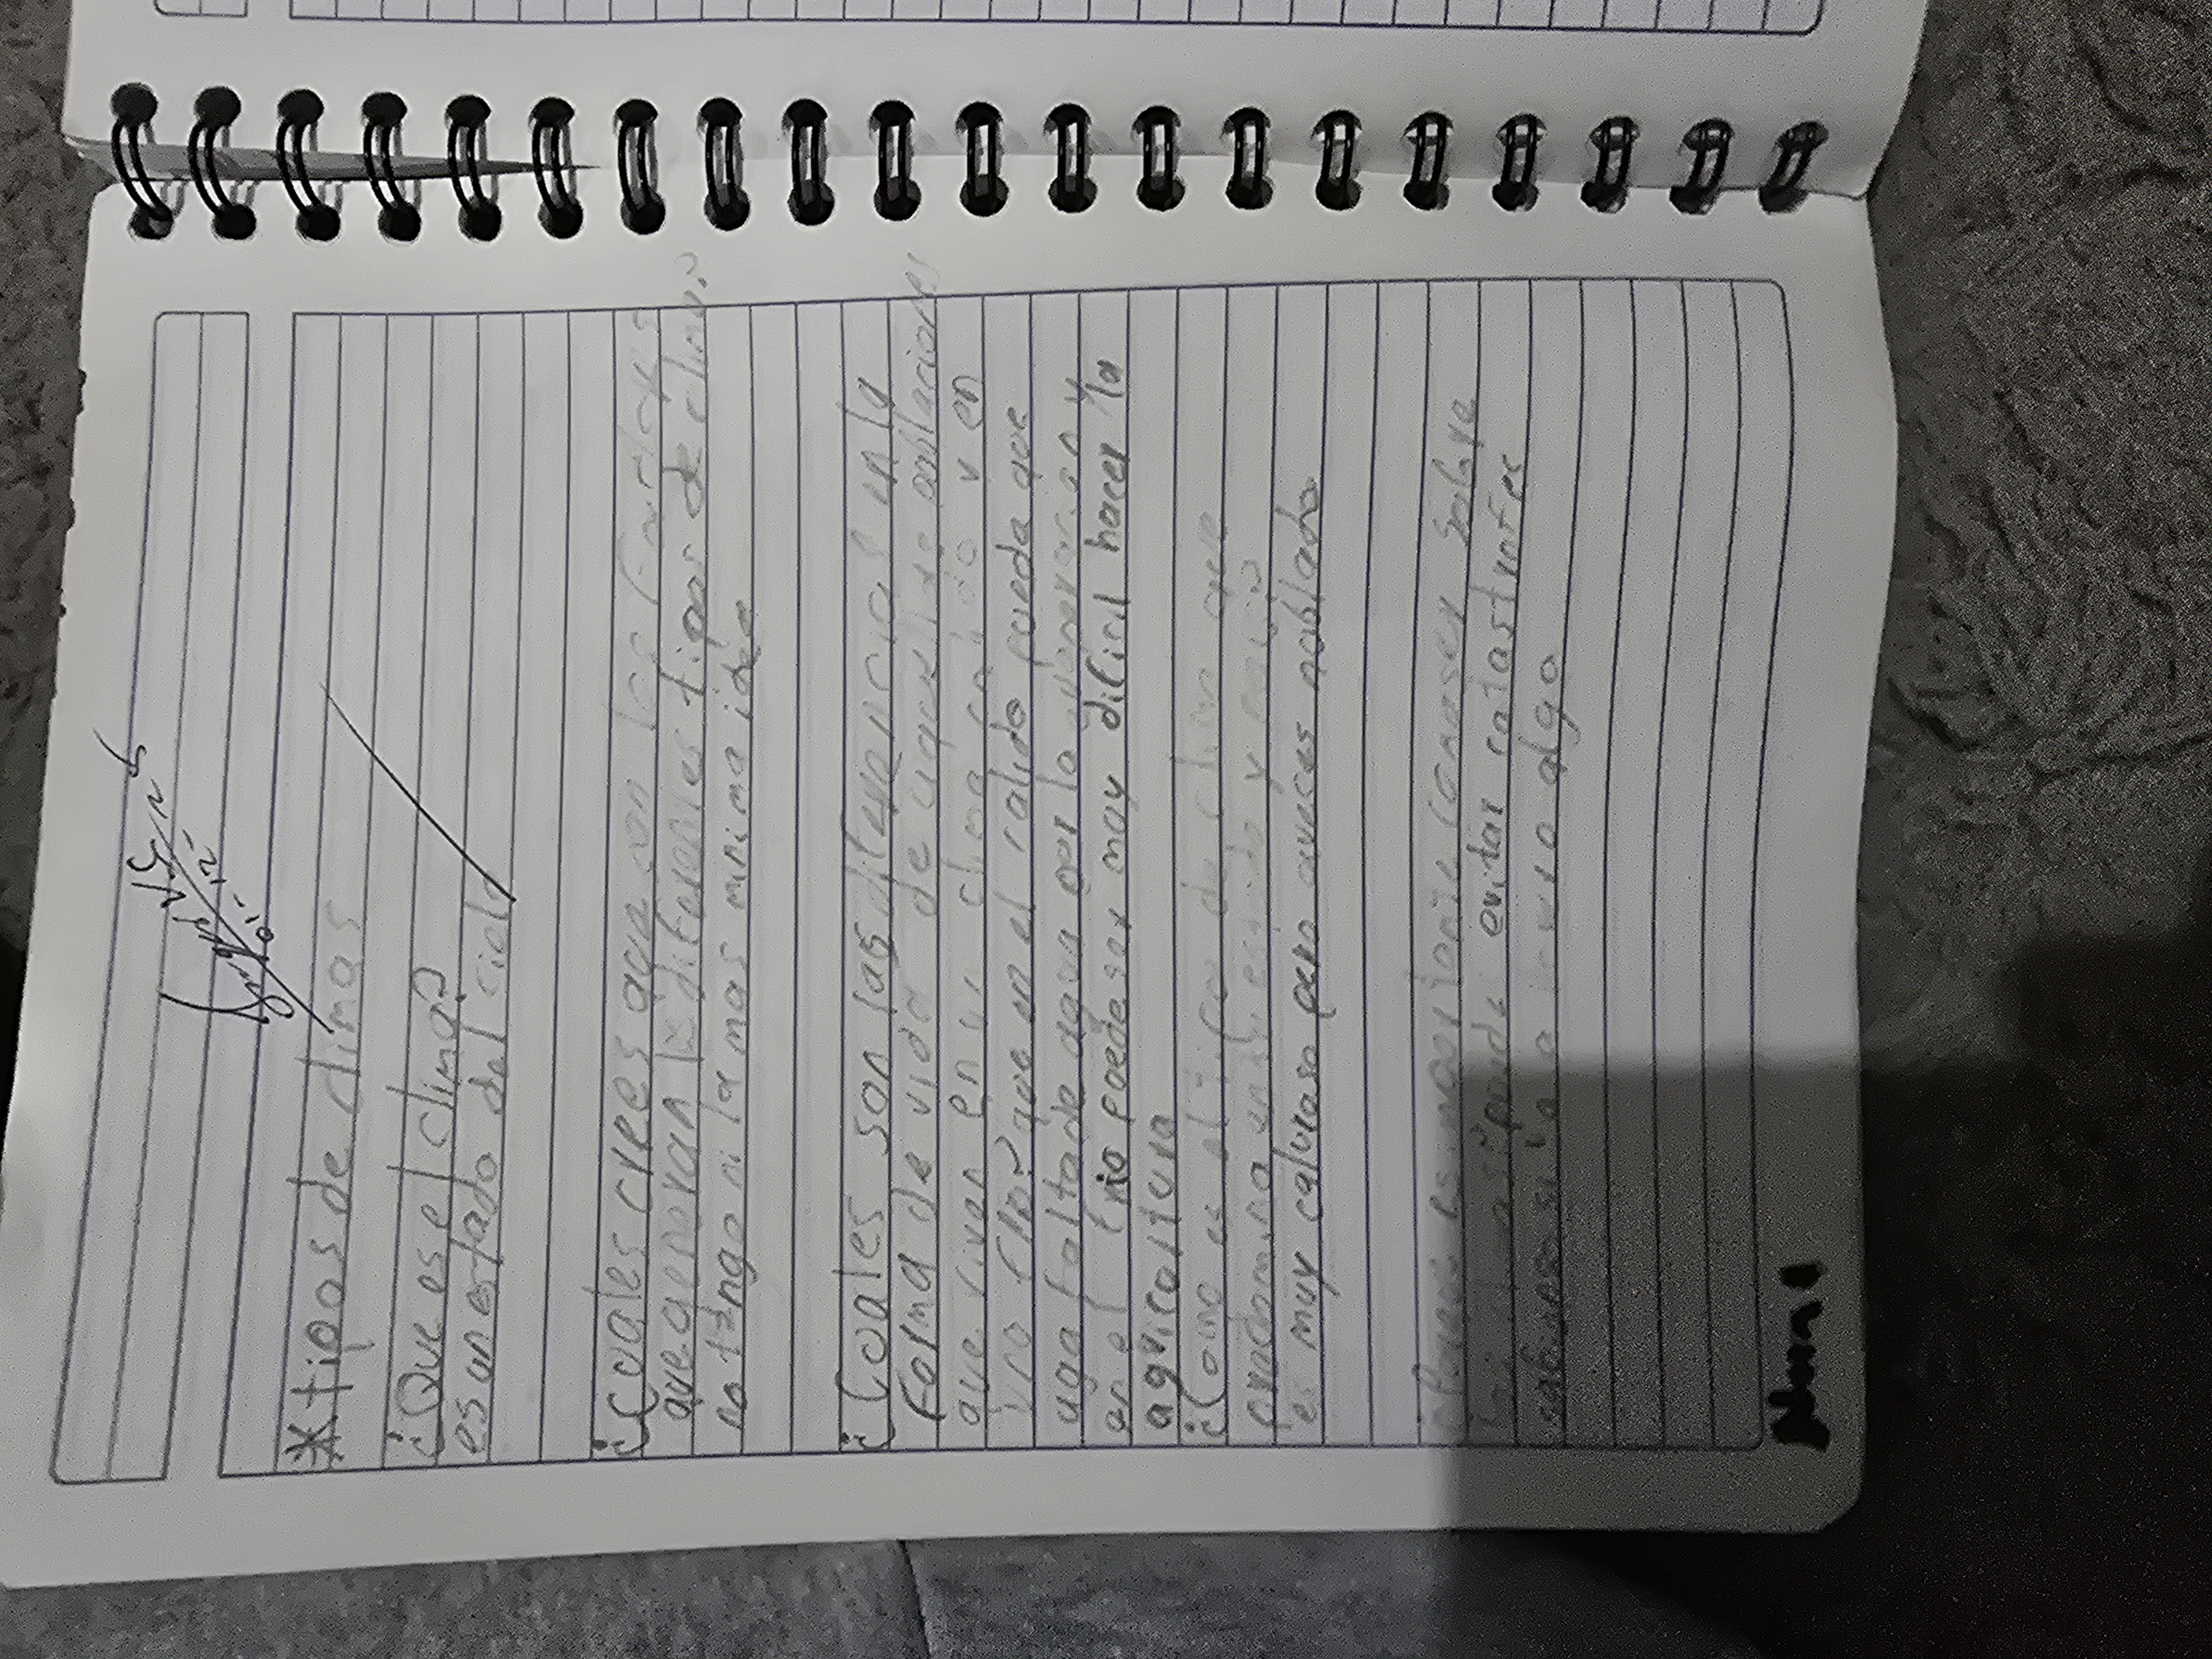 * tipos de climas
¿Que es el clima?
es un estado del cielo
¿Cuales crees que son los factores
que generan los diferentes tipos de clima?
no tengo ni la mas minima idea
¿Cuales son las diferencias en la
forma de vida de aquellas poblaciones
que viven en un clima calido y en
uno frio? que en el calido pueda que
aga falta de agua por la y
en el frio puede ser muy dificil hacer la
agricultura
¿Como es el tipo de clima que
predomina en tu estado y
es muy caluroso pero aveces nublado
es importante conocer sobre
asi puedes evitar catastrofes
algo